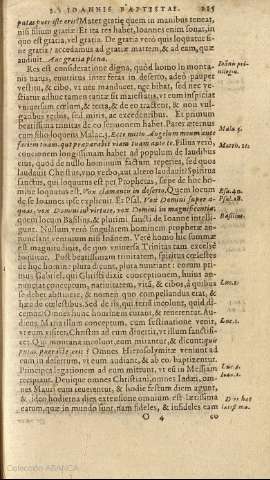 S. IOANNIS BAPTISTAE. 215
putas puer iste erit? Mater gratię quem in manibus teneat,
nisi filium gratiæ? Et ita res habet, Ioannes enim sonat, in
quo est gratia, vel gratia. De gratia verò quis loquatur
ne gratia? accedamus ad gratiæ matrem, & ad eam, quæ
audiuit. Aue gratia plena.
Res est consideratione digna, quòd homo in monta-
nis natus, enutritus inter feras in deserto, adeò pauper
vestitu, & cibo, vt nec manducet, nec bibat, sed nec ve-
stiatur
vniuersum cœlum, & terra, & de eo tractent, & non vul-
garibus verbis, sed miris, ac excedentibus. Et primum
beatissima trinitas de eo sermonem habet. Pater æternus
cum filio loquens Malac. 3. Ecce mitto Angelum meum ante
faciem tuam, qui præparabit viam tuam ante te. Filius verò
concionem longissimam habet ad populum de laudibus
eius, quod de nullo hominum factum reperies, sed quos
laudauit Christus, quo verbo, aut altero laudauit? Spiritus
sanctus, qui loquutus est per Prophetas, sæpe de hoc ho-
mine loquutus est. Vox clamantis in deserto. Quem locum
de se Ioannes ipse explicuit. Et Psal. Vox Domini super a-
quas, vox Domini in virtute, vox Domini in magnificentia,
quem locum Basilius, & plurimi sancti de Ioanne intelli-
gunt. Nullum verò singularem hominem prophetæ an-
nunciant venturum nisi Ioannem. Verè homo hic summæ
est magnitudinis, de quo vniuersa Trinitas tam excelsè
loquitur. Post beatissimam trinitatem, spiritus cœlestes
de hoc homine plura dicunt, plura nunciant: eorum pri-
mus Gabriel, qui Christi dixit conceptionem, huius an-
nunciat conceptum, natiuitatem, vitā, & cibos, à quibus
se debet abstinere, & nomen quo compellandus erat, &
hæc de cœlestibus. Sed de iis, qui terrā incolunt, quid di-
cemus? Omnes hunc hominem curant, & reuerentur. Au-
diens Maria illum conceptum, cum festinatione venit,
vt eum visitet, Christum ad eum direxit, vt illum sanctifi-
cet: Qui montana incolunt, eum mirantur, & dicunt: quis
putas puer iste erit? Omnes Hierosolymitæ veniunt ad
eum in desertum, vt eum audiant, & ab eo baptizentur.
Principes legationem ad eum mittunt, vt eū in Messiam
recipiant. Denique omnes Christiani, omnes Iudæi, om-
nes Mauri eam reuerentur, & hodie festum diem agunt,
& ideo hodierna dies extensione omnium est lætissima
earum, quæ in mundo sunt, nam fideles, & infideles eam
O 4
Malac. 3.
Matth. 11.
Esa. 40.
Psal. 28.
Basilius.
Luc. 1.
Luc. 1.
Luc. 1.
Ioan. 1.
Dies hæc
lætissima.
Colección ABANCA